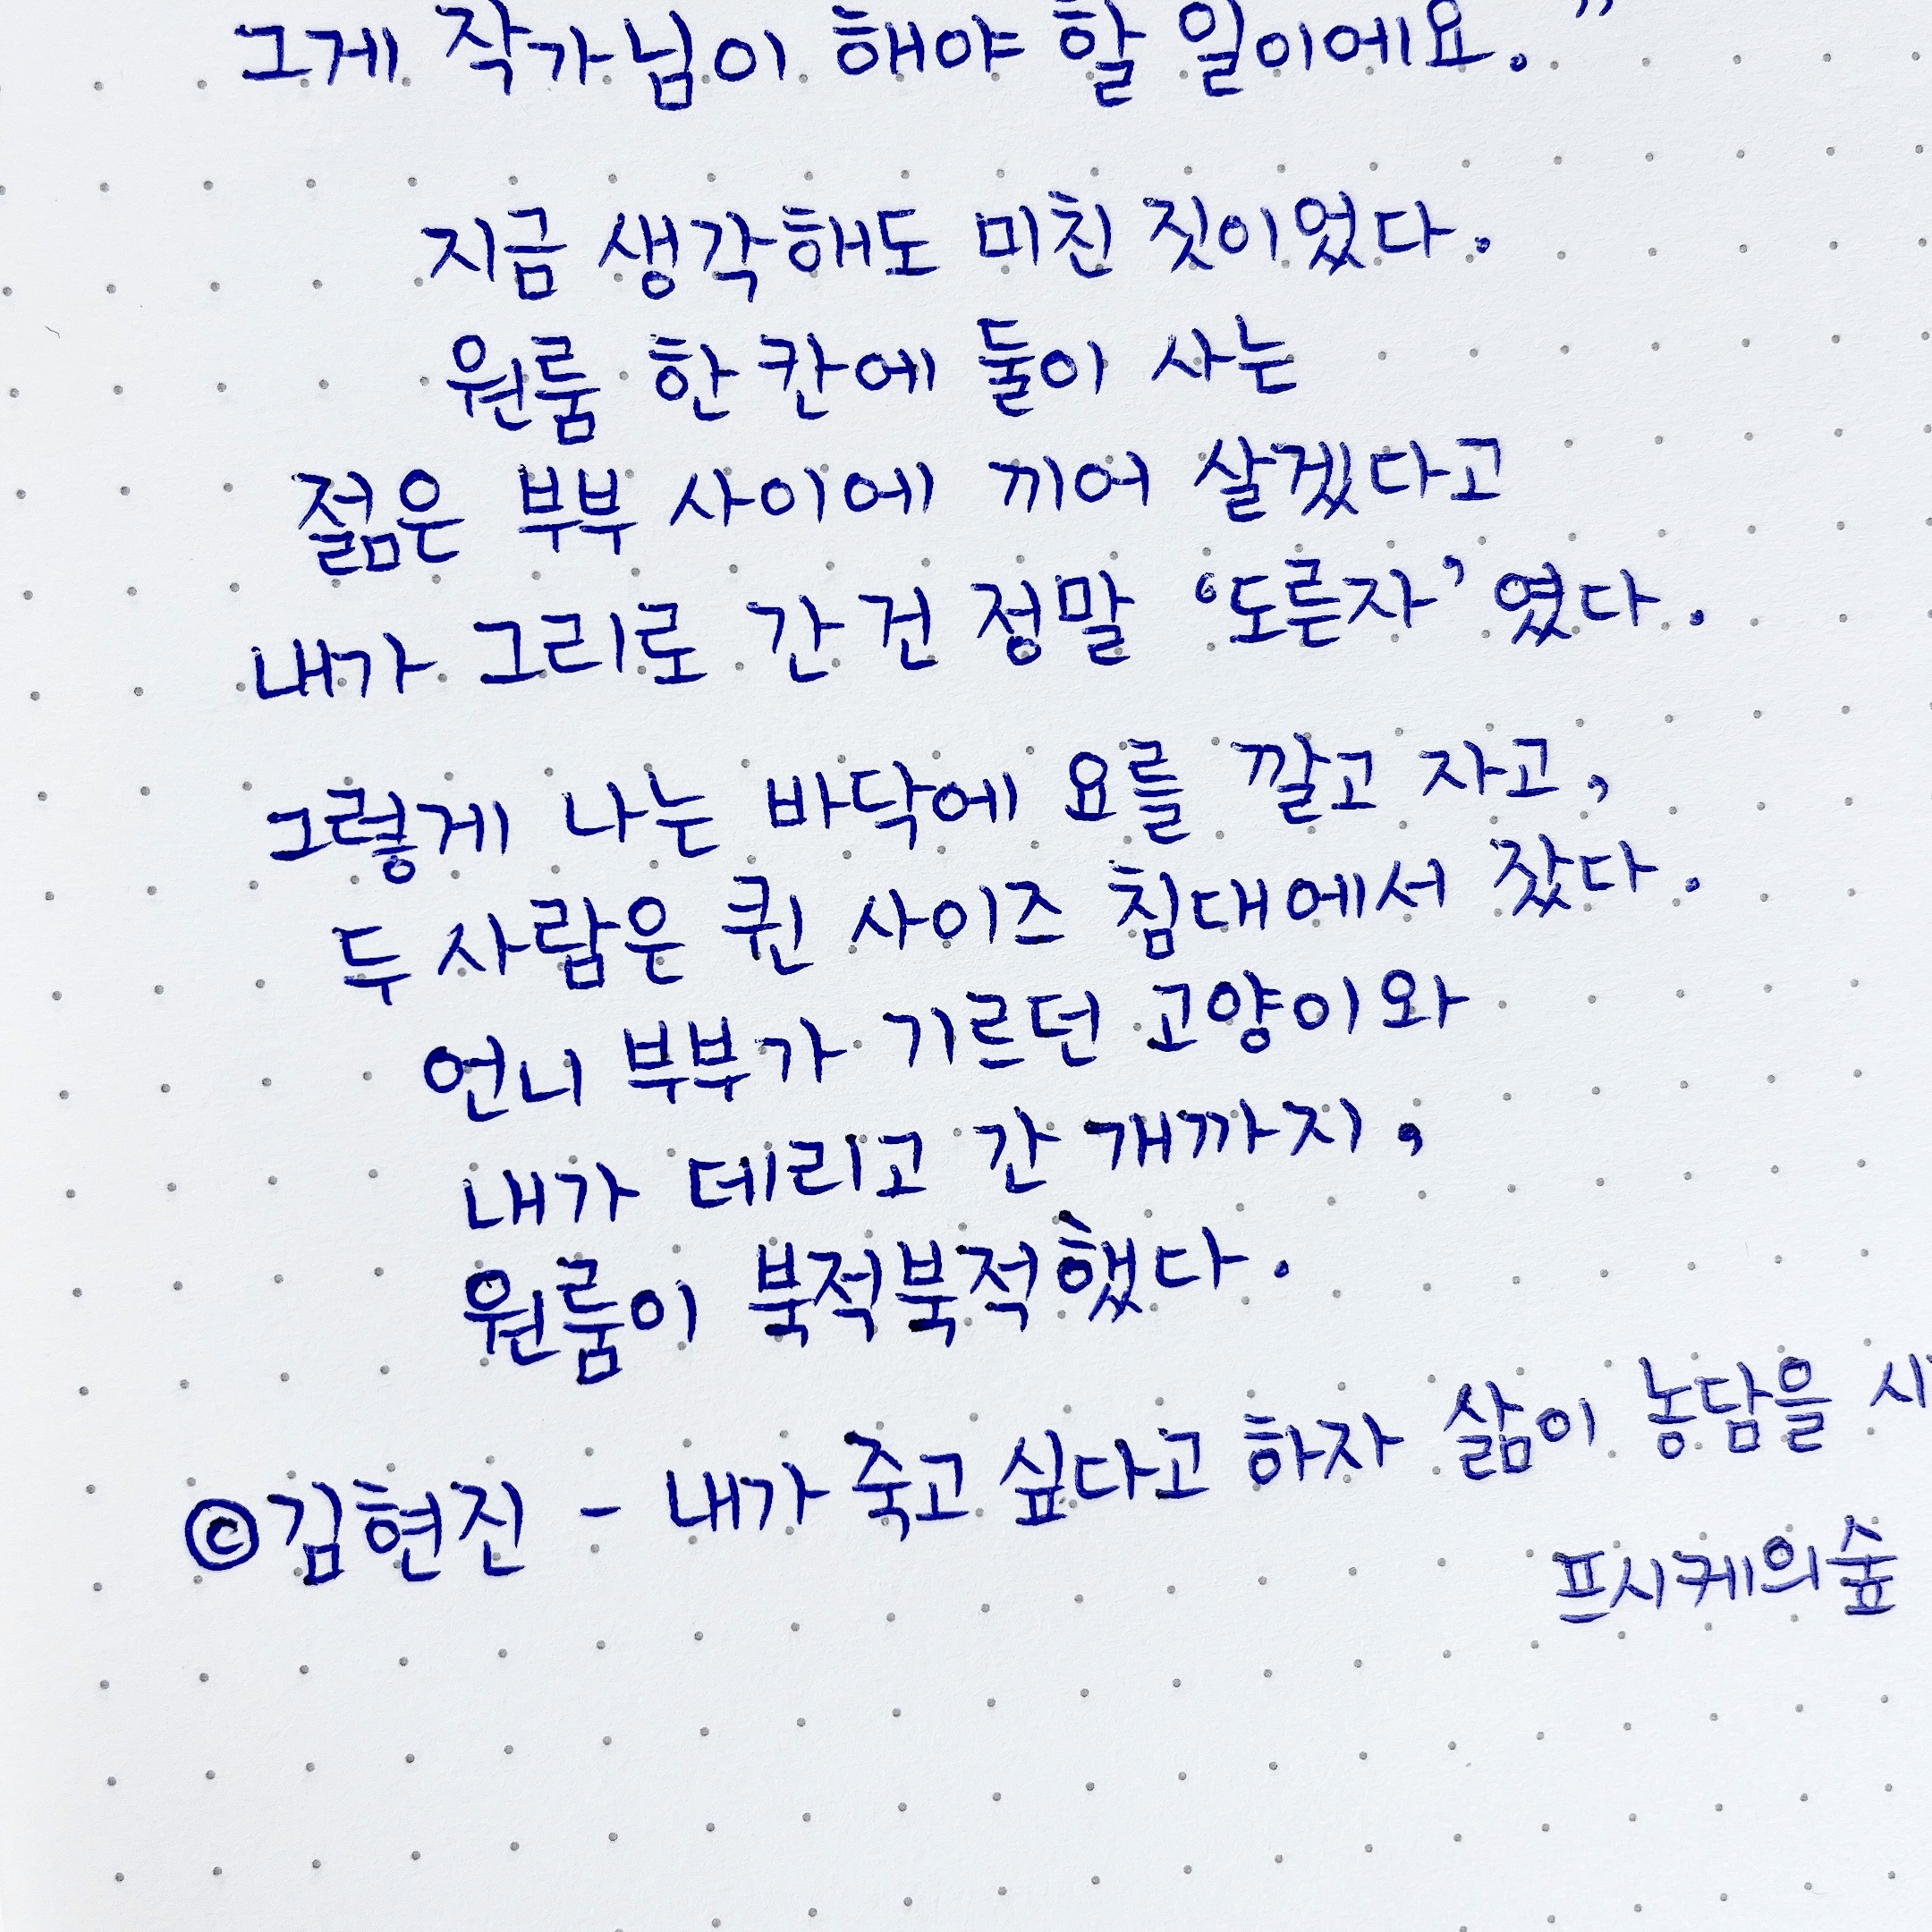 그게 작가님이 해야 할 일이에요."
지금 생각해도 미친 짓이었다.
원룸 한 칸에 둘이 사는
젊은 부부 사이에 끼어 살겠다고
내가 그리로 간 건 정말 '도른자'였다.
그렇게 나는 바닥에 요를 깔고 자고,
두 사람은 퀸 사이즈 침대에서 잤다.
언니 부부가 기르던 고양이와
내가 데리고 간 개까지,
원룸이 북적북적했다.
©김현진 - 내가 죽고 싶다고 하자 삶이 농담을
프시케의숲